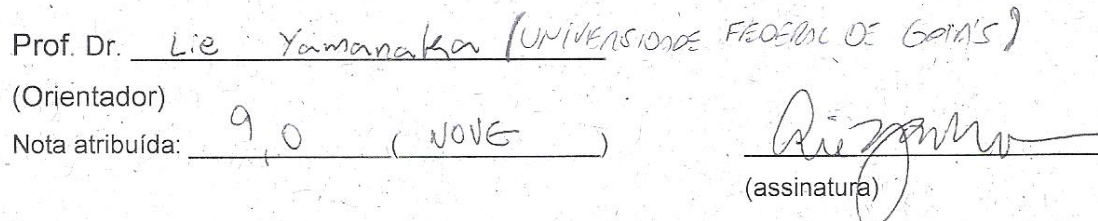 Prof. Dr. Lie Yamanaka (UNIVERSIDADE FEDERAL DE GOIÁS)
(Orientador)
Nota atribuída: 9,0 (NOVE)
(assinatura)